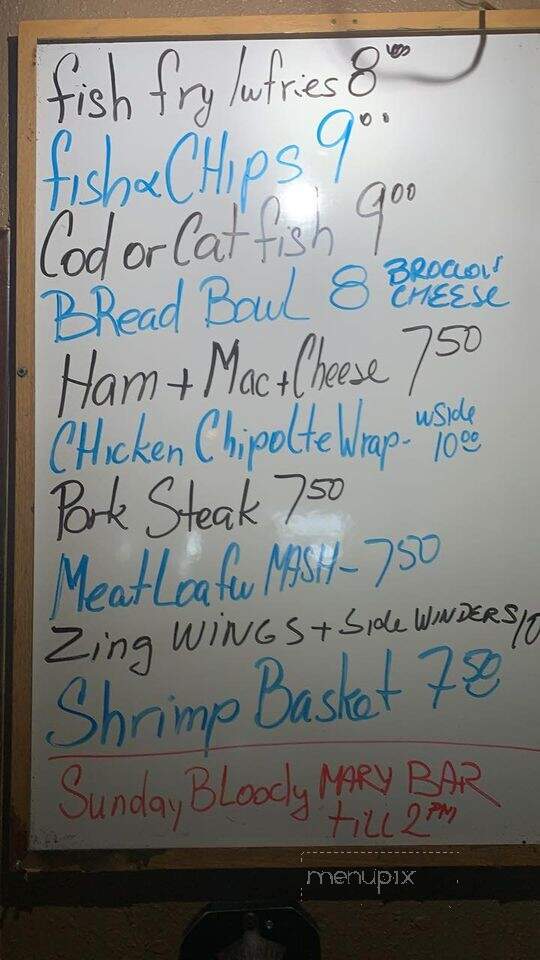 fish fry /w fries 8⁰⁰
fish & CHips 9⁰⁰
Cod or Cat fish 9⁰⁰
BRead Bowl 8 BROCCOLI CHEESE
Ham + Mac + Cheese 7⁵⁰
CHicken Chipolte Wrap - w side 10⁰⁰
Pork Steak 7⁵⁰
Meat Loaf w MASH - 7⁵⁰
Zing WiNGS + Side WINDERS 10
Shrimp Basket 7⁵⁰
Sunday BLoody MARY BAR
till 2PM
menupix